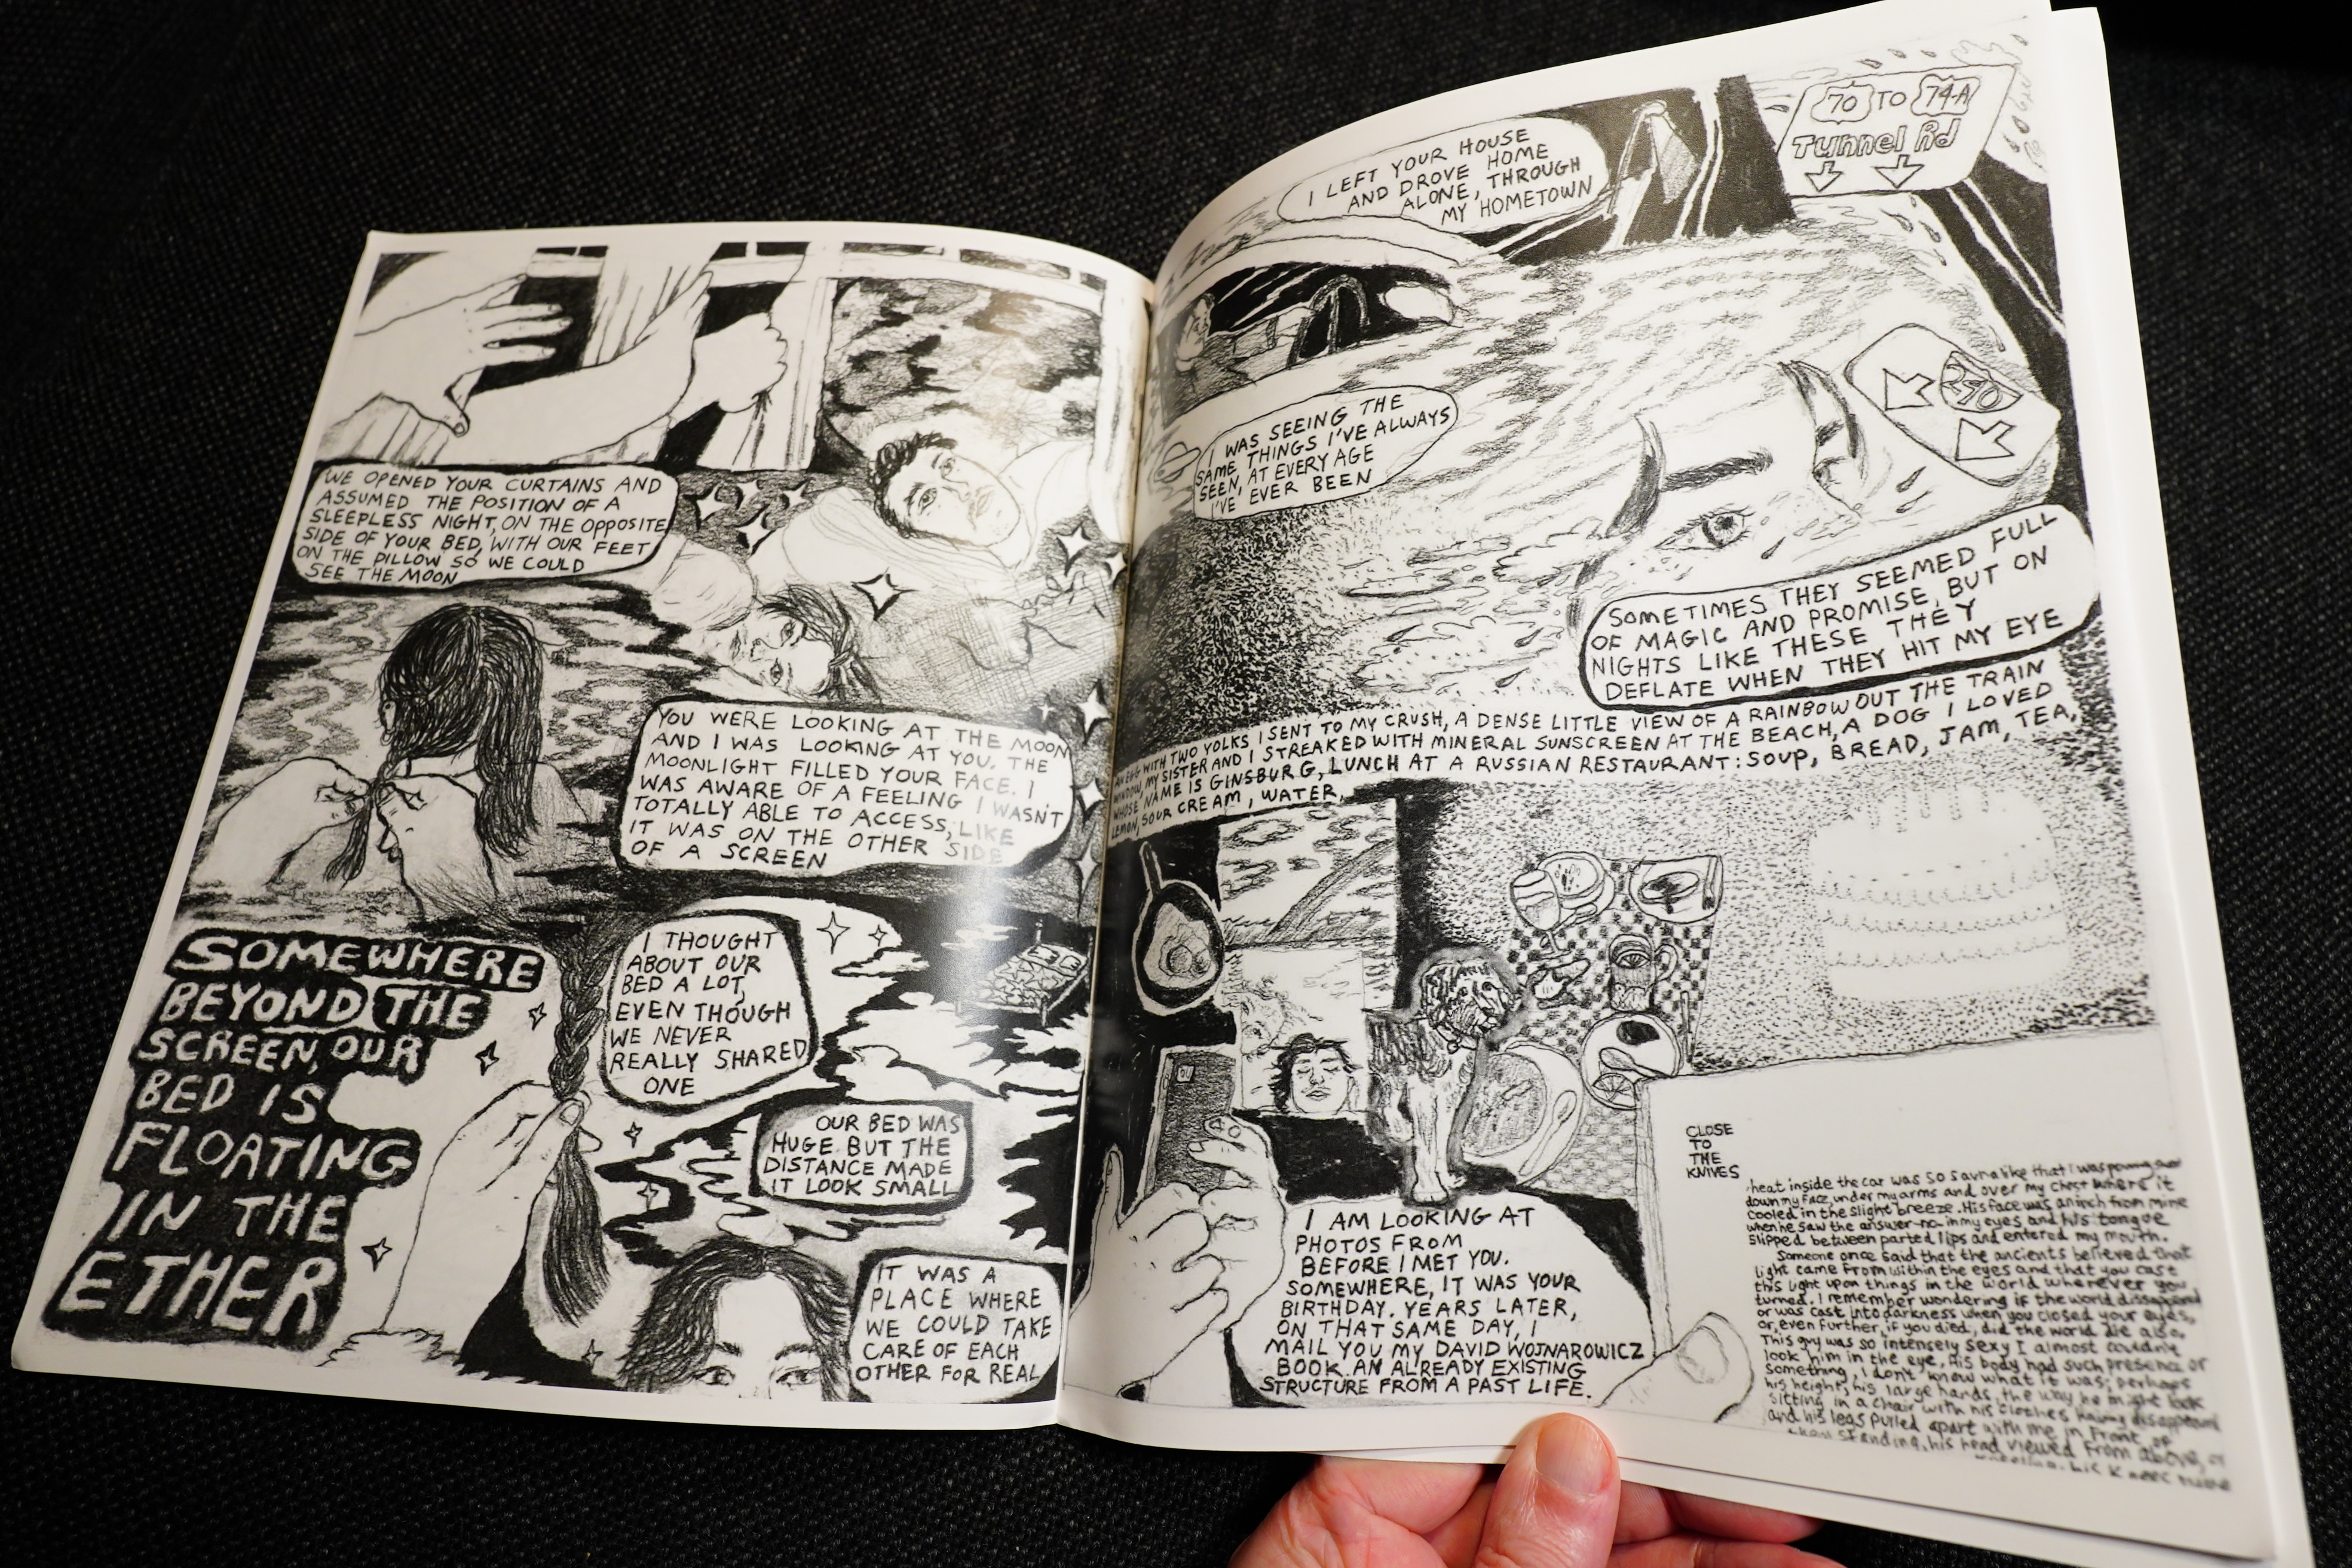 WE OPENED YOUR CURTAINS AND
ASSUMED THE POSITION OF A
SLEEPLESS NIGHT, ON THE OPPOSITE
SIDE OF YOUR BED, WITH OUR FEET
ON THE PILLOW SO WE COULD
SEE THE MOON
YOU WERE LOOKING AT THE MOON
AND I WAS LOOKING AT YOU. THE
MOONLIGHT FILLED YOUR FACE. I
WAS AWARE OF A FEELING I WASN'T
TOTALLY ABLE TO ACCESS, LIKE
IT WAS ON THE OTHER SIDE
OF A SCREEN
SOMEWHERE
BEYOND THE
SCREEN, OUR
BED IS
FLOATING
IN THE
ETHER
I THOUGHT
ABOUT OUR
BED A LOT,
EVEN THOUGH
WE NEVER
REALLY SHARED
ONE
OUR BED WAS
HUGE BUT THE
DISTANCE MADE
IT LOOK SMALL
IT WAS A
PLACE WHERE
WE COULD TAKE
CARE OF EACH
OTHER FOR REAL
I LEFT YOUR HOUSE
AND DROVE HOME
ALONE, THROUGH
MY HOMETOWN
70 TO 74-A
Tunnel Rd
240
I WAS SEEING THE
SAME THINGS I'VE ALWAYS
SEEN, AT EVERY AGE
I'VE EVER BEEN
SOMETIMES THEY SEEMED FULL
OF MAGIC AND PROMISE, BUT ON
NIGHTS LIKE THESE THEY
DEFLATE WHEN THEY HIT MY EYE
AN EGG WITH TWO YOLKS I SENT TO MY CRUSH, A DENSE LITTLE VIEW OF A RAINBOW OUT THE TRAIN
WINDOW, MY SISTER AND I STREAKED WITH MINERAL SUNSCREEN AT THE BEACH, A DOG I LOVED
WHOSE NAME IS GINSBURG, LUNCH AT A RUSSIAN RESTAURANT: SOUP, BREAD, JAM, TEA,
LEMON, SOUR CREAM, WATER,
I AM LOOKING AT
PHOTOS FROM
BEFORE I MET YOU.
SOMEWHERE, IT WAS YOUR
BIRTHDAY. YEARS LATER,
ON THAT SAME DAY, I
MAIL YOU MY DAVID WOJNAROWICZ
BOOK. AN ALREADY EXISTING
STRUCTURE FROM A PAST LIFE.
CLOSE
TO
THE
KNIVES
heat inside the car was so sauna like that I was pouring
down my face, under my arms and over my chest where it
cooled in the slight breeze. His face was an inch from mine
when he saw the answer-no-in my eyes and his tongue
slipped between parted lips and entered my mouth.
Someone once said that the ancients believed that
light came from within the eyes and that you cast
this light upon things in the world wherever you
turned. I remember wondering if the world
or was cast into darkness when you closed your eyes,
or, even further, if you died, did the world die also.
This guy was so intensely sexy I almost couldn't
look him in the eye. His body had such presence or
something, I don't know what it was; perhaps
his height, his large hands, the way he might look
sitting in a chair with his clothes having disappeared
and his legs pulled apart with me in front of
standing, his head viewed from above, or